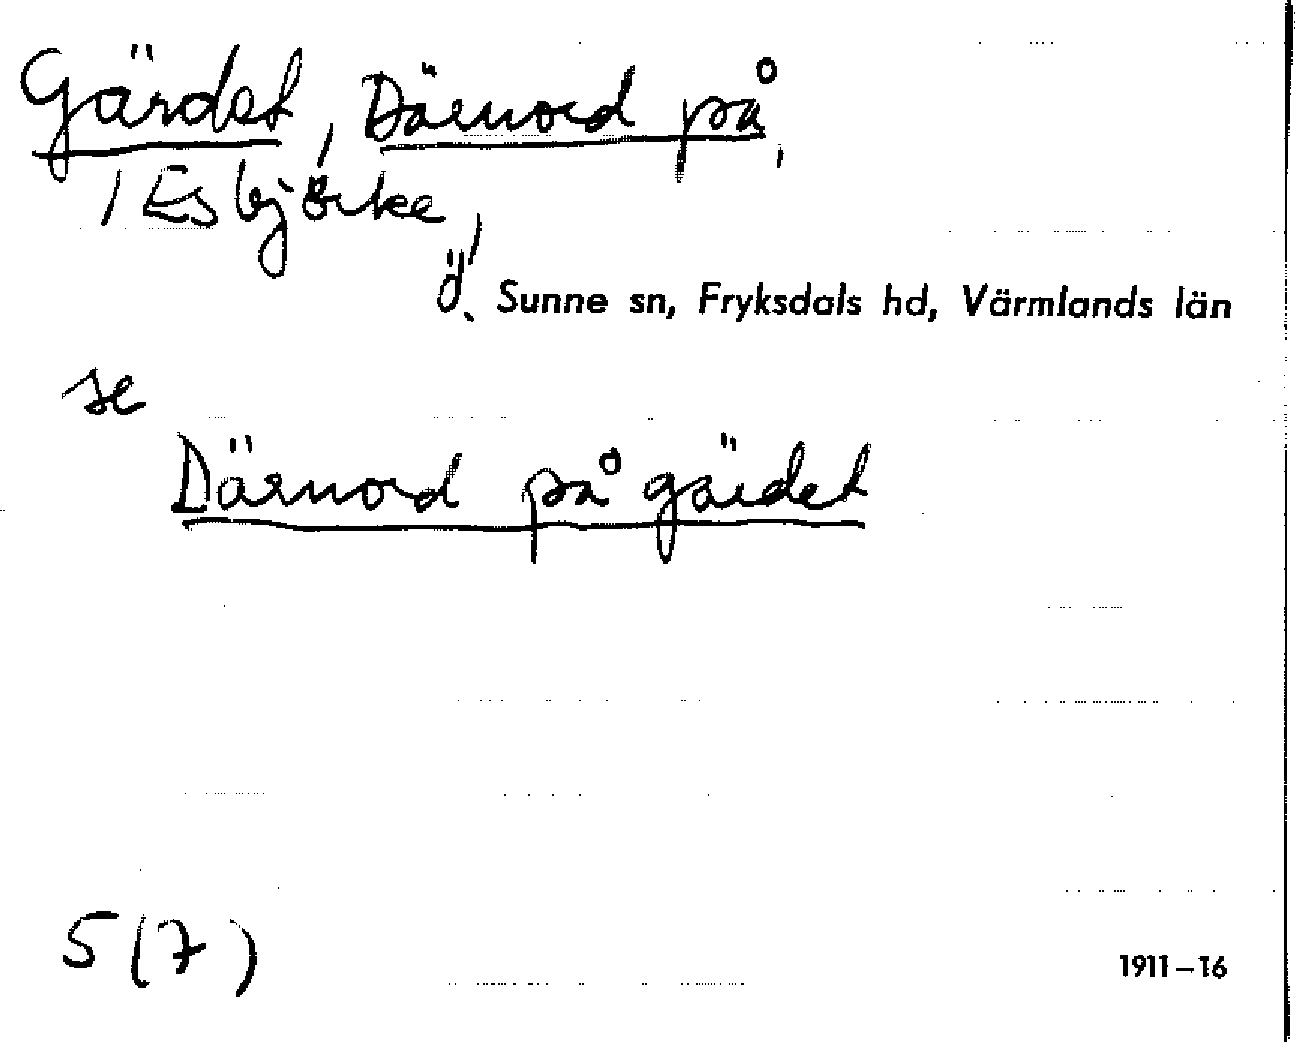 Gärdet, Därnord på,
/Esbjörke,
ö. Sunne sn, Fryksdals hd, Värmlands län
se
Därnord på gärdet
5(7)
1911–16